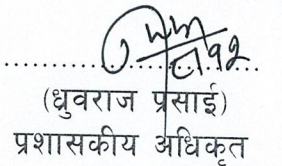 (ध्रुवराज प्रसाई)
प्रशासकीय अधिकृत